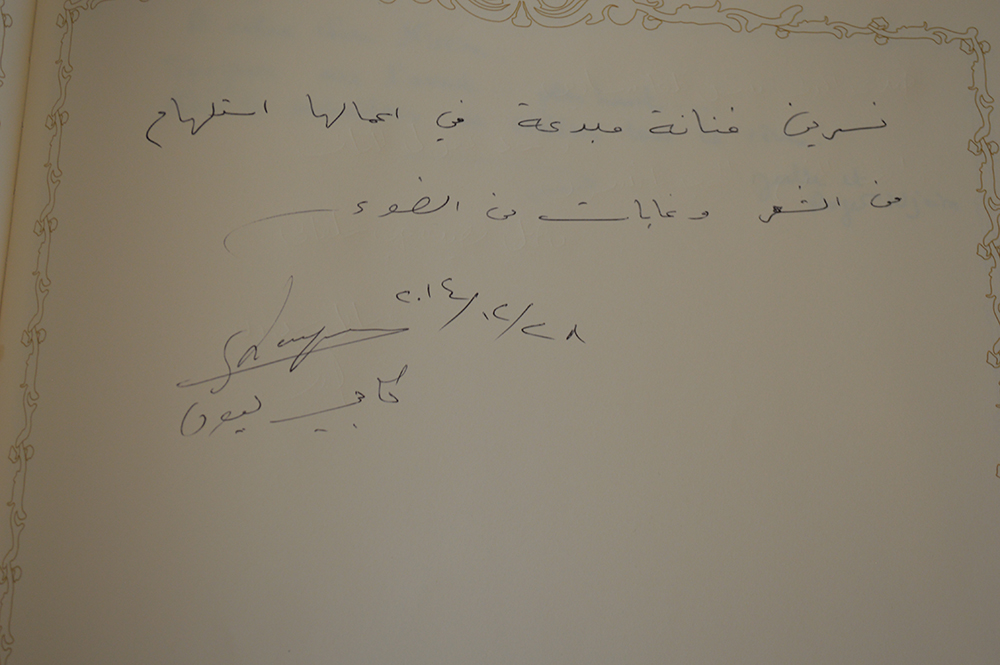 نسرين فنانة مبدعة في اعمالها استلهام
من الشعر وغابات من الضوء
٢٠١٤/١٢/٢٨
ليون